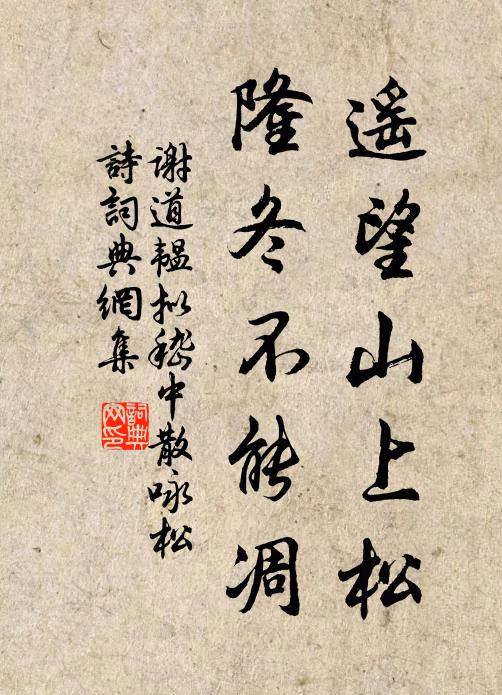 遥望山上松
隆冬不能凋
谢道韫拟嵇中散咏松
詩詞典網集
詞典
网印